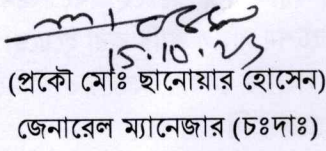 15.10.23
(প্রকৌ মোঃ ছানোয়ার হোসেন)
জেনারেল ম্যানেজার (চঃদাঃ)